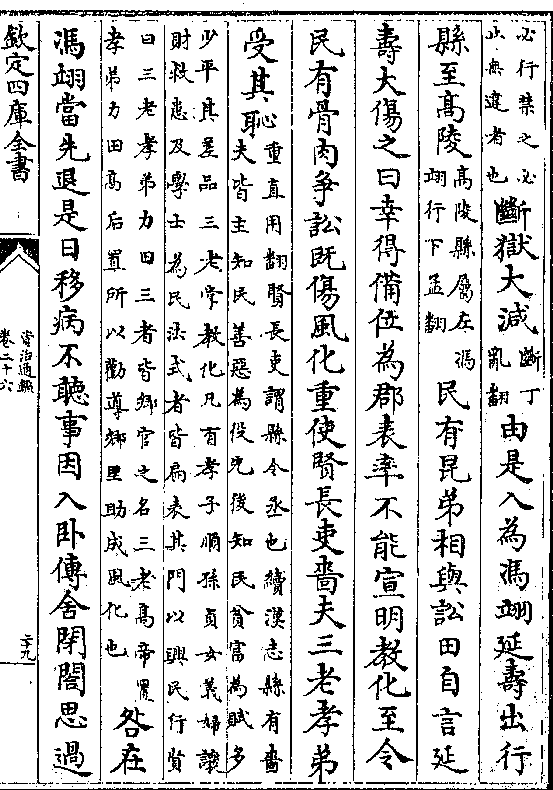 必行禁之必
止無違者也斷獄大減斷丁
亂翻由是入為馮翊延壽出行
縣至高陵高陵縣屬左馮
翊行下孟翻民有昆弟相與訟田自言延
壽大傷之曰幸得備位為郡表率不能宣明教化至令
民有骨肉爭訟既傷風化重使賢長吏嗇夫三老孝弟
受其恥重直用翻賢長吏謂縣令丞也續漢志縣有嗇
夫皆主知民善惡為役先後知民貧富為賦多
少平其差品三老掌教化凡有孝子順孫貞女義婦讓
財救患及學士為民法式者皆扁表其門以興民行賢
曰三老孝弟力田三者皆鄉官之名三老高帝置
孝弟力田高后置所以勸導鄉里助成風化也咎在
馮翊當先退是日移病不聽事因入臥傳舍閉閤思過
欽定四庫全書
資治通鑑
卷二十六
二十九